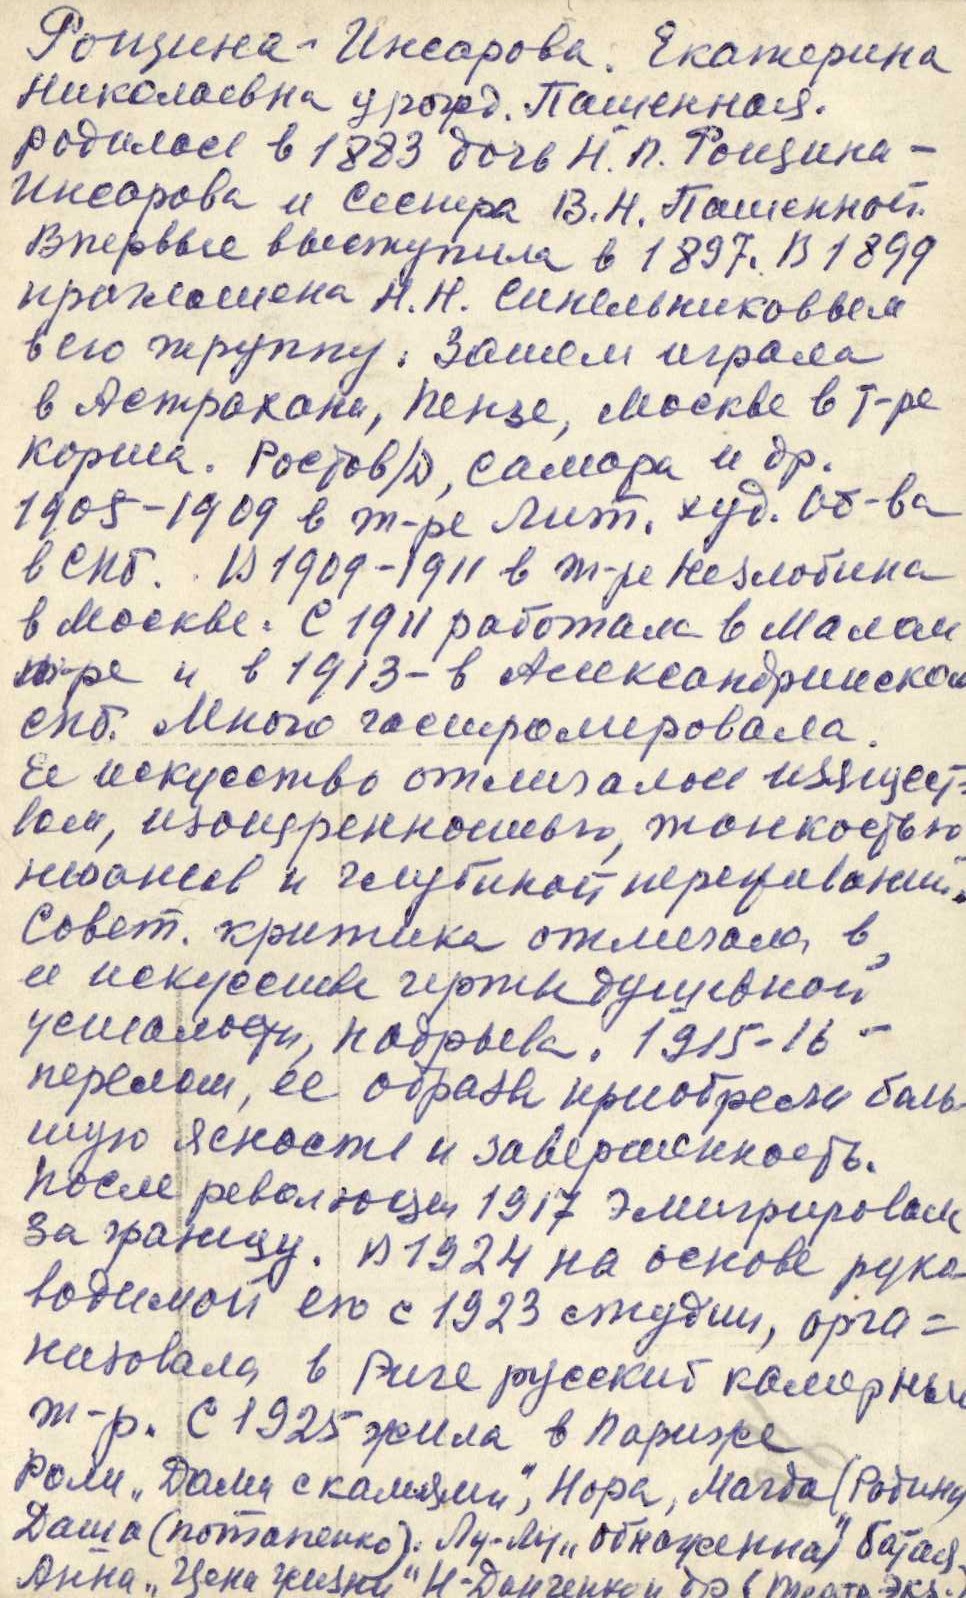 Рощина-Инсарова. Екатерина
Николаевна урожд. Пашенная.
родилась в 1883 дочь Н.П. Рощина-
Инсарова и сестра В.Н. Пашенной.
Впервые выступила в 1897. В 1899
приглашена Н.Н. Синельниковым
в его труппу. Затем играла
в Астрахани, Пензе, Москве в т-ре
Корша. Ростов/Д, Самара и др.
1905-1909 в т-ре Лит. худ. Об-ва
в СПб. В 1909-1911 в т-ре Незлобина
в Москве. С 1911 работала в Малом
т-ре и в 1913- в Александринском
СПб. Много гастролировала.
Ее искусство отличалось изящест-
вом, изощренностью, тонкостью
нюансов и глубиной переживаний.
Совет. критика отмечала в
ее искусстве черты душевной
усталости, надрыва. 1915-16 -
перелом, ее образы приобрели боль-
шую ясность и завершенность.
После революции 1917 эмигрировала
за границу. В 1924 на основе руко-
водимой ею с 1923 студии, орга=
низовала в Риге русский камерный
т-р. С 1925 жила в Париже
Роли „Дама с камелиями", Нора, Магда (Родина)
Даша (Потапенко). Лу-Лу „Обнаженная" Батая
Анна „Цена жизни" Н-Данченко и др (Театр Энц.)